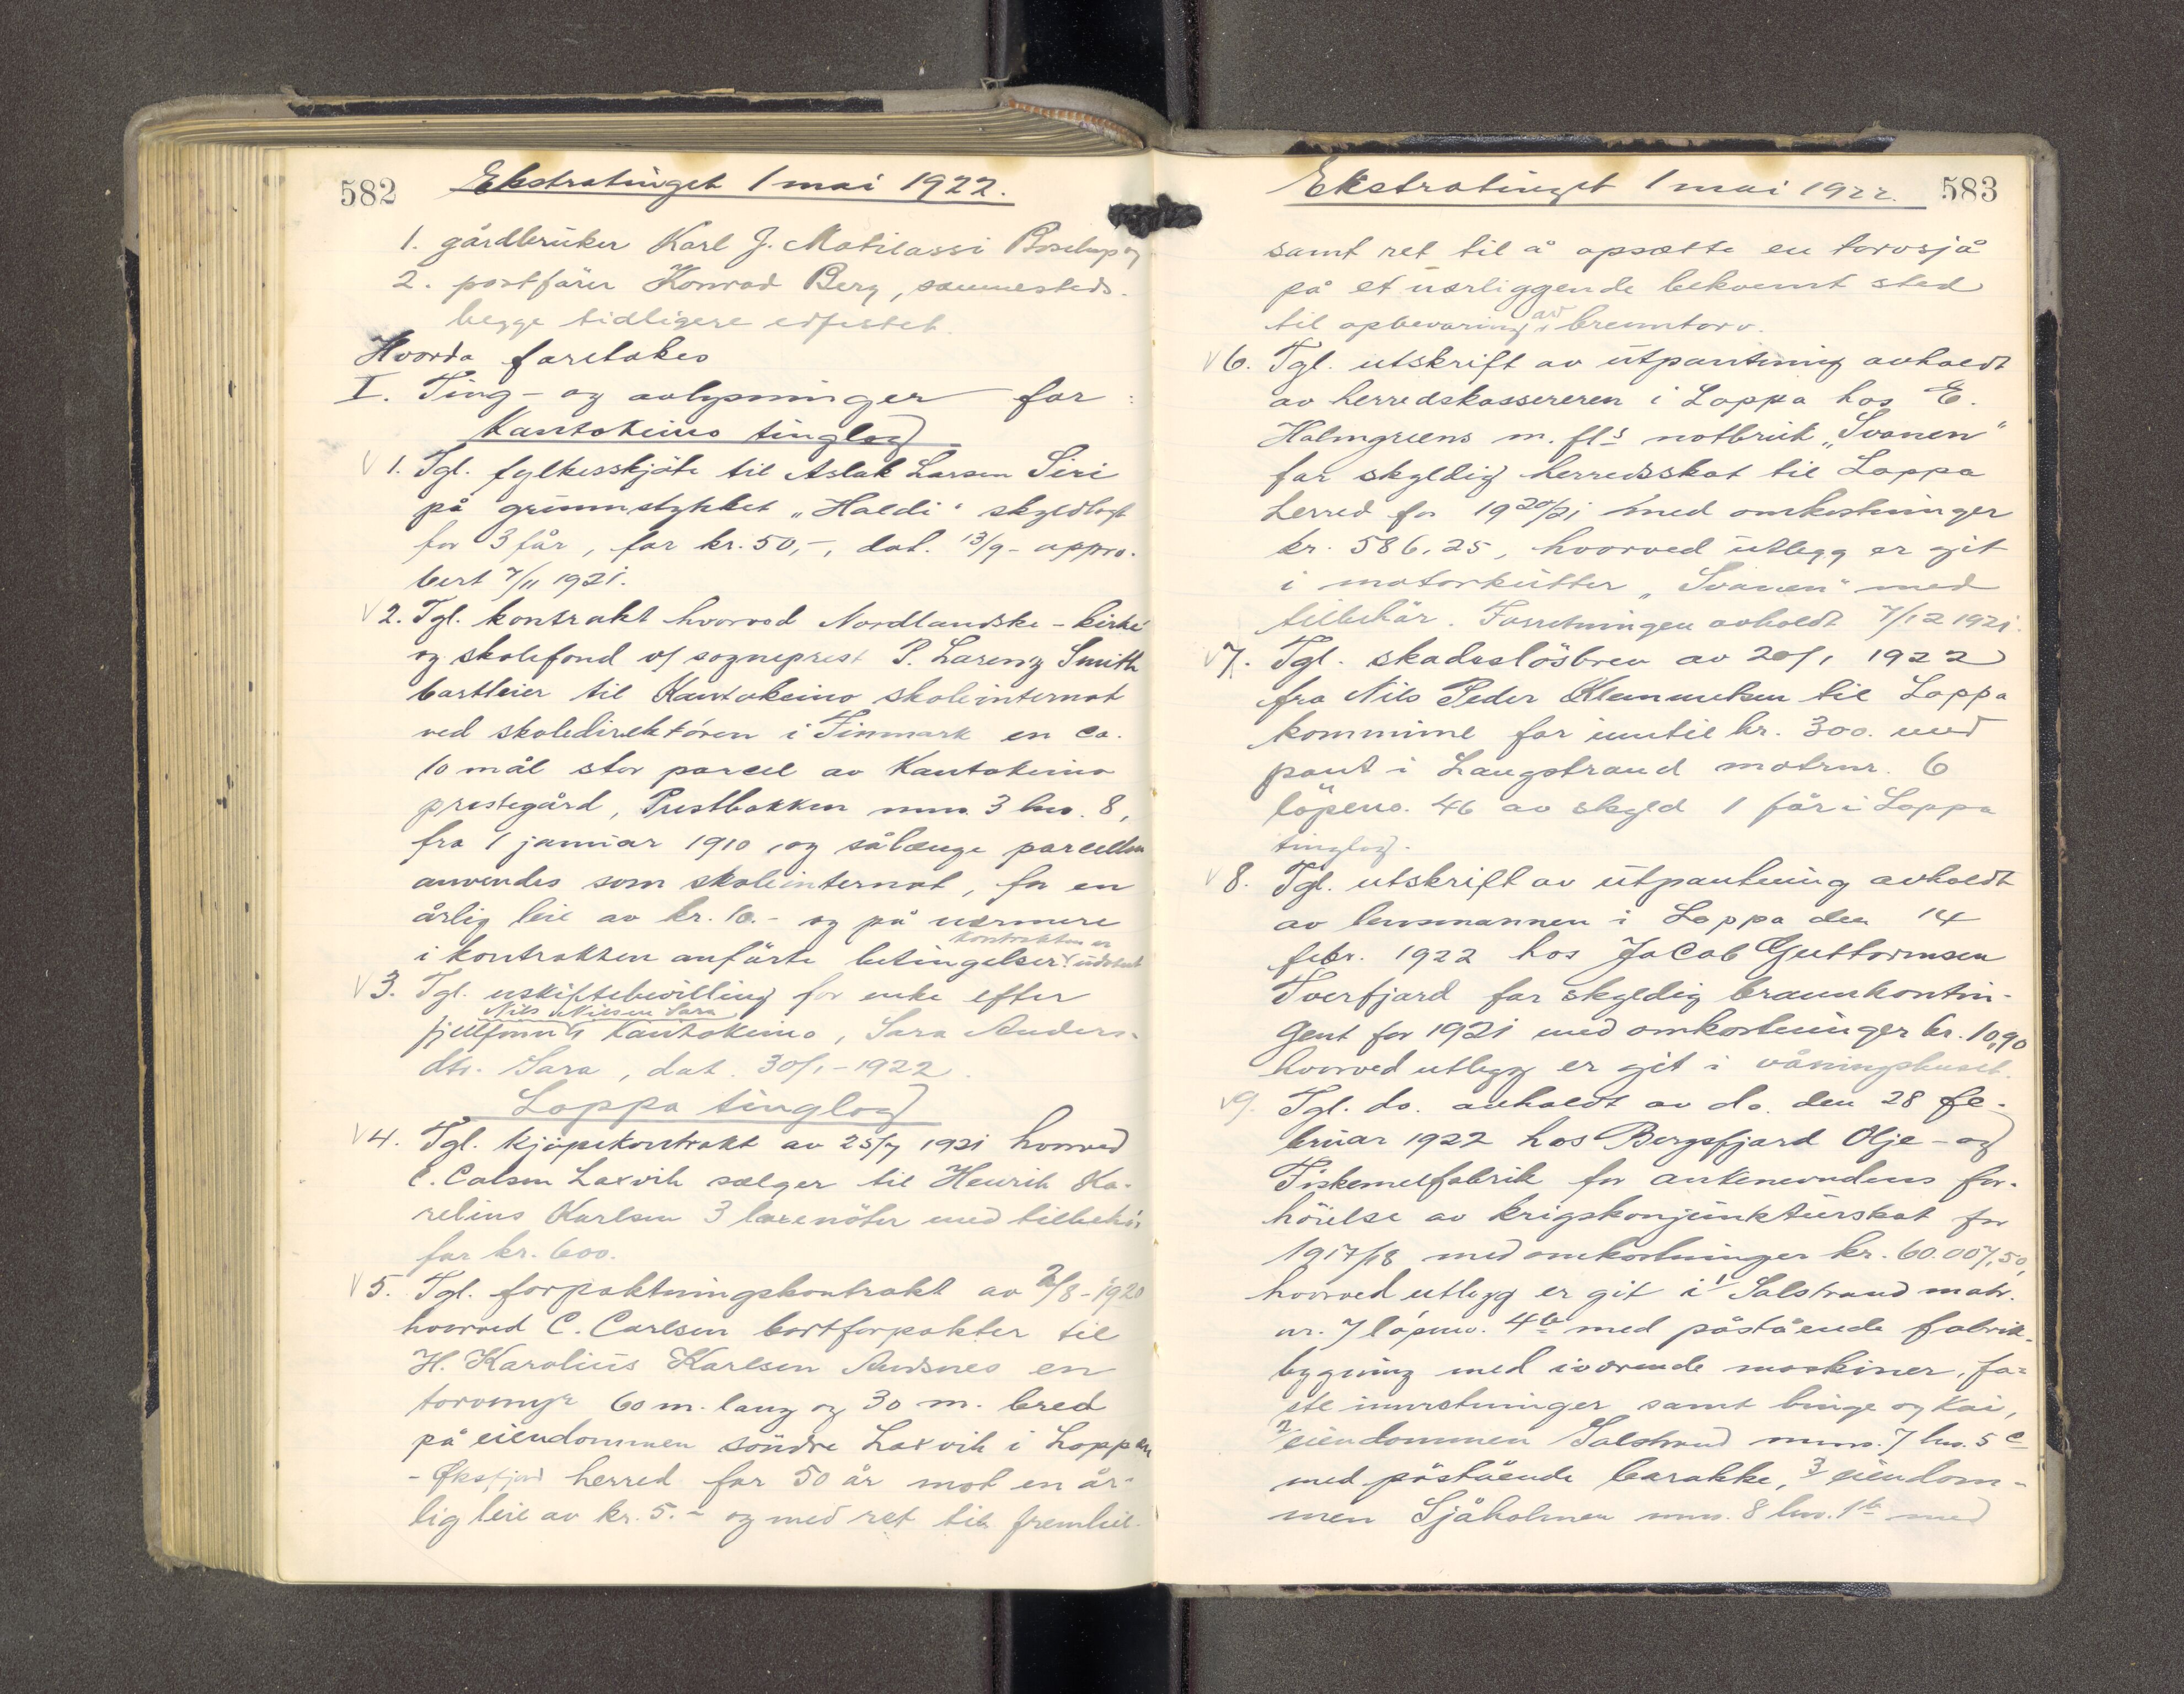 582 Ekstratinget 1 mai 1922.
1. gårdbruker Karl J. Matilassi Bosekop og
2. postfører Konrad Berg, sammesteds.
begge tidligere edfestet.
Hvorda foretokes
I. Ting- og avlysninger for:
Kautokeino tinglag
1. Tgl. fylkesskjøte til Aslak Larsen Siri
på grunnstykket „Haldi" skyldlagt
for 3 før, for kr. 50,-, dat. 13/9- appro-
bert 7/11 1921.
2. Tgl. kontrakt hvorved Nordlandske - kirke
og skolefond v/ sogneprest P. Lorenz Smith
bortleier til Kautokeino skoleinternat
ved skoledirektøren i Finmark en ca.
10 mål stor parcel av Kautokeino
prestegård, Prestbakken mnr. 3 lnr. 8,
fra 1 januar 1910 og sålænge parcellen
anvendes som skoleinternat, for en
årlig leie av kr. 10.- og på nærmere
kontrakten er
i kontrakten anførte betingelser. udatert
3. Tgl. uskiftebevilling for enke efter
Nils Nilsen Sara
fjellfinn Kautokeino, Sara Anders-
dtr. Sara, dat. 30/1-1922.
Loppa tinglag
4. Tgl. kjøpekontrakt av 25/7 1921 hvorved
C. Calsen Laxvik sælger til Henrik Ka-
relius Karlsen 3 laxenöter med tilbehör
for kr. 600.
5. Tgl. forpaktningskontrakt av 2/8-1920
hvorved C. Carlsen bortforpakter til
H. Karolius Karlsen Andsnes en
torvmyr 60 m. lang og 30 m. bred
på eiendommen söndre Laxvik i Loppen
- Øksfjord herred for 50 år mot en år-
lig leie av kr. 5.- og med ret til fremleie
Ekstratinget 1 mai 1922. 583
samt ret til å opsætte en torvsjå
på et nærliggende bekvemt sted
til opbevaring av brenntorv.
6. Tgl. utskrift av utpantning avholdt
av herredskassereren i Loppa hos E.
Halmgreens m. fl.s notbruk „Svanen"
for skyldig herredsskat til Loppa
herred for 1920/21 med omkostninger
kr. 586,25, hvorved utlegg er git
i motorkutter „Svanen" med
tilbehör. Forretningen avholdt 7/12 1921.
7. Tgl. skadeslösbrev av 20/1 1922
fra Nils Peder Klemmetsen til Loppa
kommune for inntil kr. 300. med
pant i Langstrand matrnr. 6
löpenr. 46 av skyld 1 før i Loppa
tinglag.
8. Tgl. utskrift av utpantning avholdt
av lensmannen i Loppa den 14
febr. 1922 hos Jacob Guttormsen
Tverfjord for skyldig brannkontin-
gent for 1921 med omkostninger kr. 10,90
hvorved utlegg er git i våningshuset.
9. Tgl. do. avholdt av do. den 28 fe-
bruar 1922 hos Bergsfjord Olje- og
Fiskemelfabrik for ankenevndens for-
höielse av krigskonjunkturskat for
1917/18 med omkostninger kr. 60.007,50,
hvorved utlegg er git i 1/ Salstrand matr.
nr. 7 löpenr. 4b med påstående fabrik-
bygning med iværende maskiner, fa-
ste innretninger samt binge og kai,
2/ eiendommen Salstrand mnr. 7 lnr. 5c
med påstående barakke, 3/ eiendom-
men Sjåholmen mnr. 8 lnr. 1b med